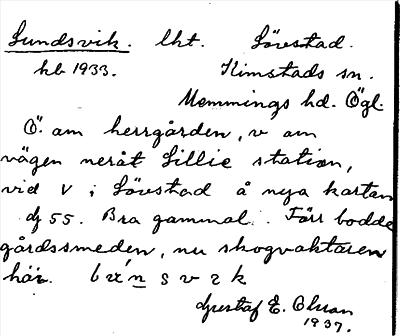 Lundsvik. lht. Lövestad.
hb 1933. Kimstads sn.
Memmings hd. Ögl.
Ö. om herrgården, v om
vägen neråt Lillie station,
vid V i Lövestad å nya kartan
dj 55. Bra gammal. Förr bodde
gårdssmeden, nu skogvaktaren
här.
Gustaf E. Olson
1937.